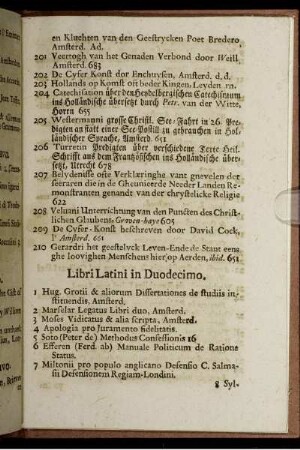 en Kluchten van den Geestrycken Poet Bredero
Amsterd. Ad.
201 Veertogh van het Genaden Verbond door Weill,
Amsterd. 683
202 De Cyfer Konst dor Enchuysen, Amsterd. d. d.
203 Hollands op Komst oft beder Kingen, Leyden
204 Catechisation über den Heydelbergischen Catechismum
ins Holländische übersetzt durch Petr. van der Witte,
Horrn 655
205 Westermanni grosse Christl. See-Fahrt in 26. Pre-
digten an statt einer See-Postill zu gebrauchen in Hol-
ländischer Sprache, Amsterd. 651
206 Turretin Predigten über verschiedene Texte Heil.
Schrifft aus dem Frantzösischen ins Holländische über-
setzt, Utrecht 678
207 Belydenisse ofte Verklaringhe vant gnevelen der
leeraren die in de Gheunieerde Needer Landen Re-
monstranten genandt van der chrystelicke Religie
622
208 Unterrichtung van den Puncten des Christ-
lichen Glaubens, Graven-hage 605
209 De Cyfer-Konst beschreven door David Cock,
Amsterd. 661
210 Gerardri het geestelyck Leven-Ende de Staat eens
ghe loovighen Menschens hier op Aerden, ibid. 651
Libri Latini in Duodecimo.
1 Hug. Grotii & aliorum Dissertationes de studiis in-
stituendis, Amsterd.
2 Marselar Legatus Libri duo, Amsterd.
3 Moses Viditatus & alia scripta, Amsterd.
4 Apologia pro Juramento fidelitatis.
5 Soto (Peter de) Methodus Confessionis 16
6 Efferen (Ferd. ab) Manuale Politicum de Ratione
Status.
7 Miltonii pro populo anglicano Defensio C. Salma-
sii Defensionem Regiam-Londini.
8 Syl-